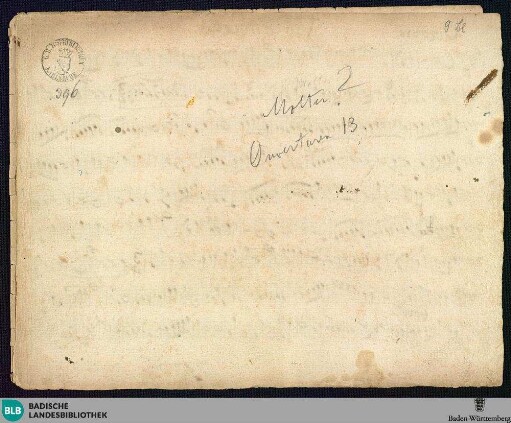 9 Bl
396
Molter ?
Ouverturen 13.
BLB
BADISCHE
LANDESBIBLIOTHEK
Baden-Württemberg